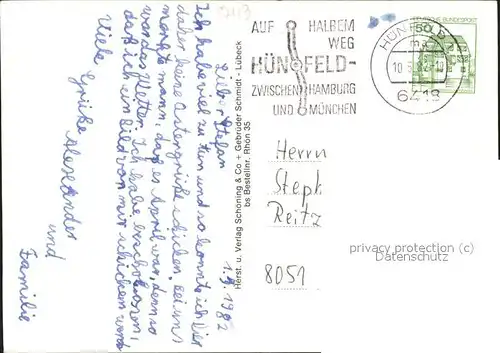 Lieber Stefan
Ich habe viel zu tun und so konnte ich Dir
daher keine Ostergrüße schicken. Bei uns
mochte mann, daß es April war, denn so
war das Wetter. Ich habe beschlossen,
daß ich ein Bild von mir schicken werde
Viele Grüße Alexander
und
Familie
1.5.1982
Herst. u. Verlag Schöning & Co + Gebrüder Schmidt - Lübeck
bs Bestellnr. Rhön 35
AUF HALBEM
WEG
HÜNFELD-
ZWISCHEN HAMBURG
UND MÜNCHEN
6419
DEUTSCHE BUNDESPOST
Herrn
Steph
Reitz
8051
privacy protection (c)
Datenschutz